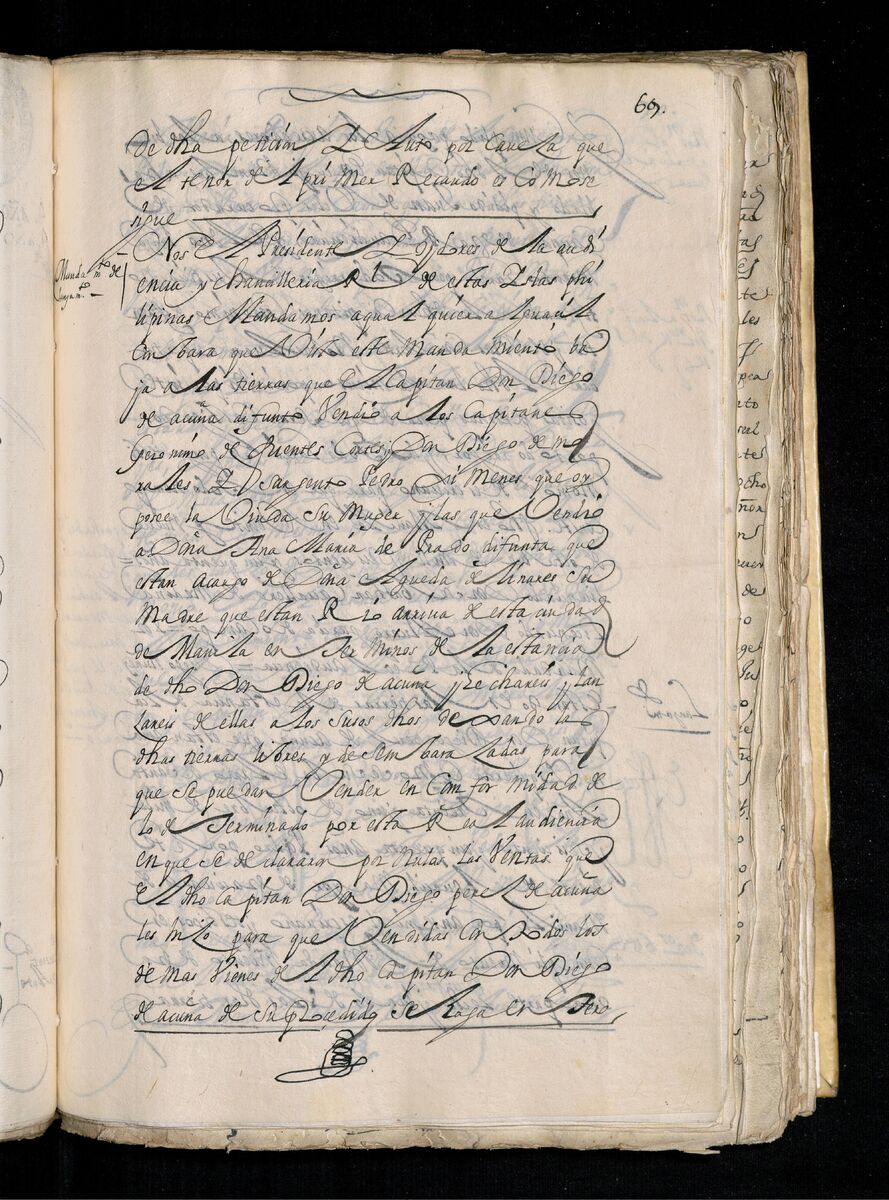 69.
de dha peticion Y Auto por Cavesa que
el tenor del primer Recaudo es Comose
sigue
Mandam.to de
lansam.to
Nos El Presidente Y Oydores de la audi
encia y chancilleria Rl de estas Yslas phi
lipinas Mandamos a qualquier alguacil
con bara que Visto este Mandamiento ba
ja a las tierras que el Capitan Don Diego
de acuña difunto Vendio a los Capitanes
Geronimo de fuentes Cortes, y Don Diego de mo
rales. Y sargento Pedro Ximenes que oy
posee la Viuda su Muger y las que Vendio
a Doña Ana Maria de Prado difunta que
estan acargo de Doña Agueda de linares su
Madre que estan Rio arriva de esta ciudad
de Manila en Terminos de la estancia
de dho Don Diego de acuña y Hechareis y lan
sareis de ellas a los susos dhos dexando las
dhas tierras libres y desembarasadas para
que se puedan Vender en Comformidad de
lo determinado por esta Real audiencia
en que se declararon por Nulas las Ventas que
el dho capitan Don Diego peres de acuña
les hizo para que Vendidas con todos los
demas Vienes del dho Capitan Don Diego
de acuña de su procedido se haga en tero